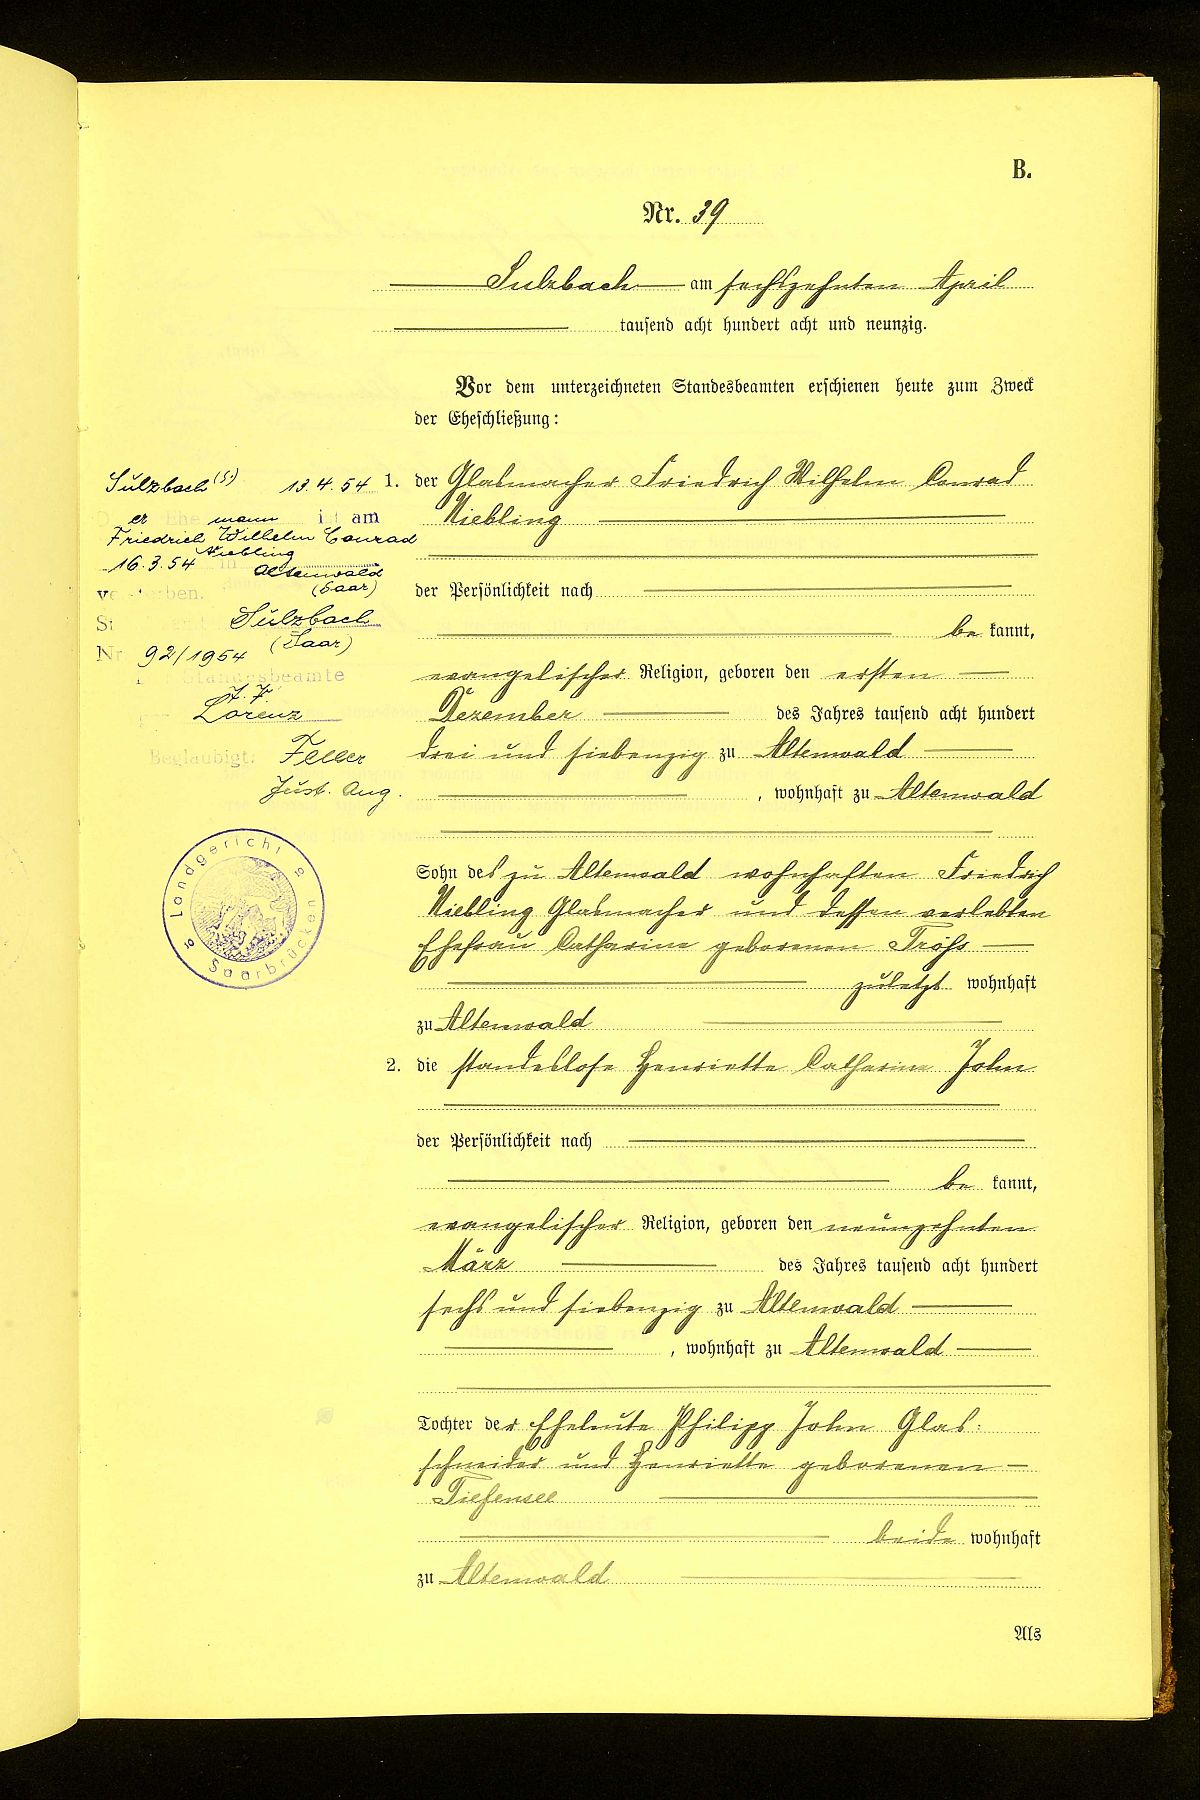 B.
Nr. 39
Sulzbach am sechszehnten April
tausend acht hundert acht und neunzig.
Vor dem unterzeichneten Standesbeamten erschienen heute zum Zweck
der Eheschließung:
1. der Glasmacher Friedrich Wilhelm Conrad
Niebling
der Persönlichkeit nach
be kannt,
evangelischer Religion, geboren den ersten
Dezember des Jahres tausend acht hundert
drei und siebenzig zu Altenwald
, wohnhaft zu Altenwald
Sohn des zu Altenwald wohnhaften Friedrich
Niebling Glasmacher und dessen verlebten
Ehefrau Catharine geborenen
zuletzt wohnhaft
zu Altenwald
2. die standeslose Henriette Catharine John
der Persönlichkeit nach
be kannt,
evangelischer Religion, geboren den neunzehnten
März des Jahres tausend acht hundert
sechs und siebenzig zu Altenwald
, wohnhaft zu Altenwald
Tochter der Eheleute Philipp John Glas:
schneider und Henriette geborenen
Tiefensee
beide wohnhaft
zu Altenwald
Als
Sulzbach (S) 13.4.54
Der Ehemann ist am
Friedrich Wilhelm Conrad
Niebling
16.3.54 in Altenwald
(Saar)
verstorben.
Sulzbach
(Saar)
Nr 92/1954
Standesbeamte
Lorenz
Beglaubigt: Feller
Just. Ang.
Landgericht
Saarbrücken